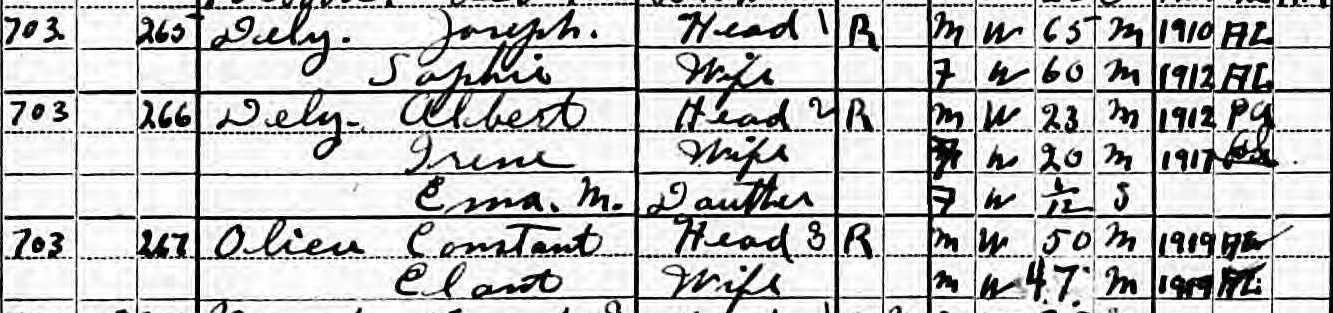 703. 265 Dely. Joseph. Head 1 R M W 65 M 1910 AL
Sophie Wife F W 60 M 1912 AL
703 266 Dely. Albert Head 2 R M W 23 M 1912 Pa
Irene Wife F W 20 M 1917
Ema. M. Dauther F W 6/12 S
703 267 Olieu Constant Head 3 R M W 50 M 1919 AL
Clant Wife M W 47. M 1919 AL